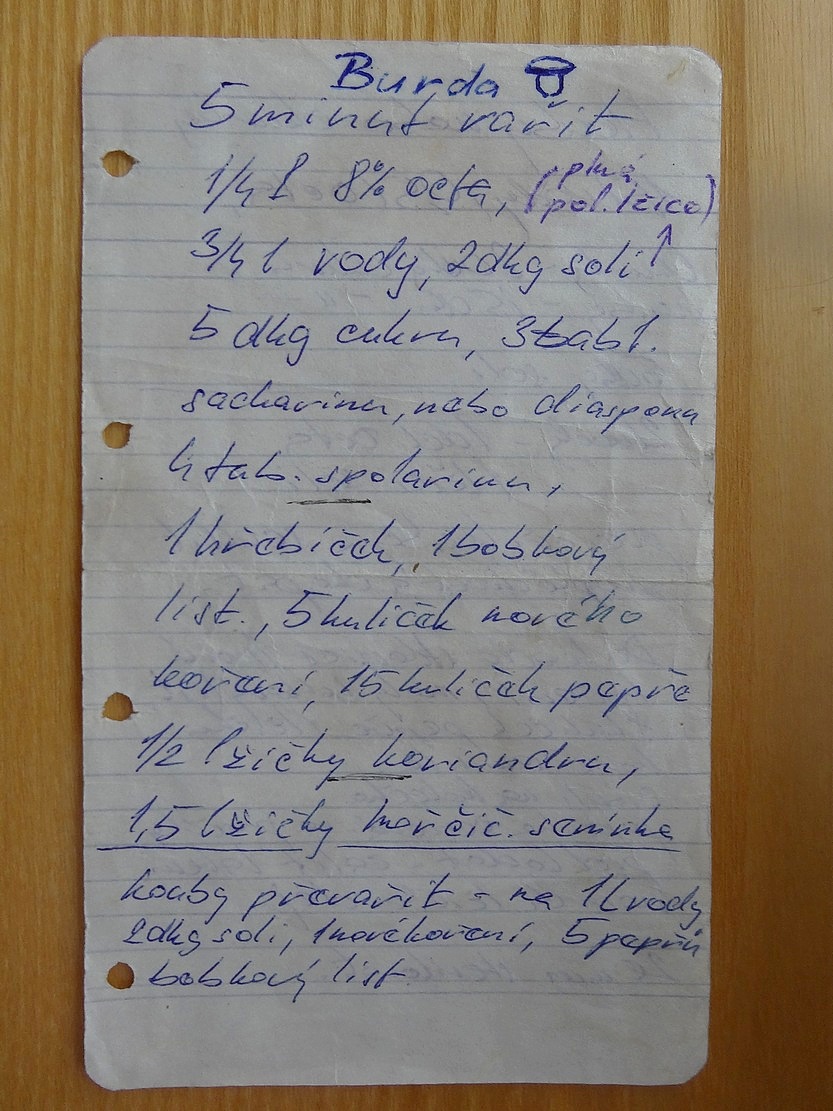 Burda
5 minut vařit
1/4 l 8% octa, (plná
pol. lžíce)
3/4 l vody, 2dkg soli
5 dkg cukru, 3 tabl.
sacharinu, nebo diasponu
4 tab. spolarinu,
1 hřebíček, 1 bobkový
list., 5 kuliček nového
koření, 15 kuliček pepře
1/2 lžičky koriandru,
1,5 lžičky hořčič. semínka
houby převařit - na 1l vody
2dkg soli, 1 novékoření, 5 pepřů
bobkový list.